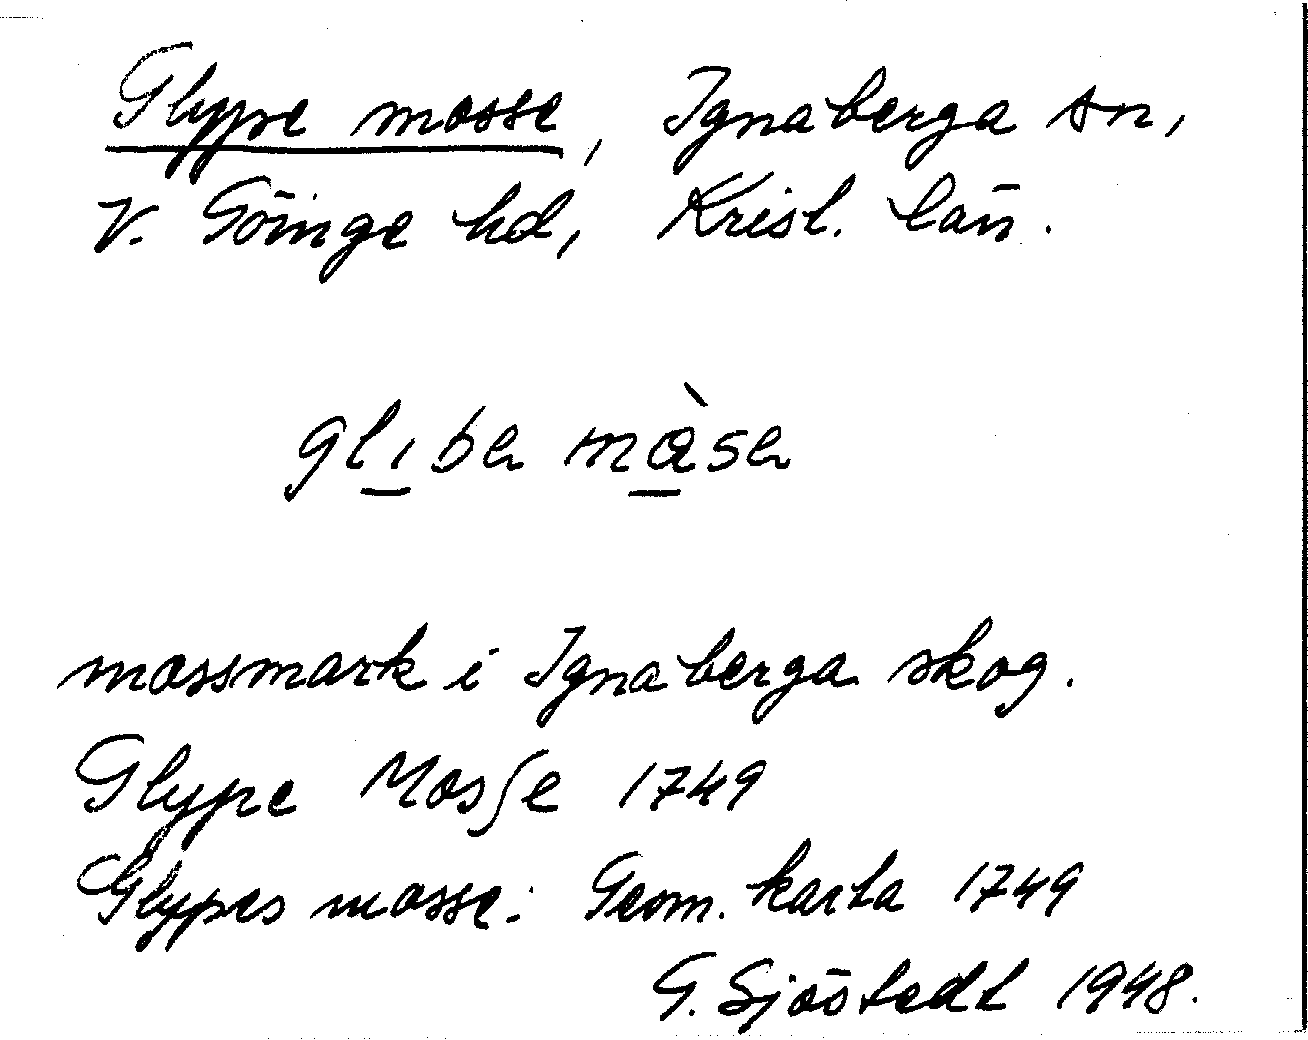 Glype mosse, Ignaberga sn,
V. Göinge hd, Krist. län.
glıbɘ màsɘ
mossmark i Ignaberga skog.
Glype Mosſe 1749
Glypes mosse: Geom. karta 1749
G. Sjöstedt 1948.